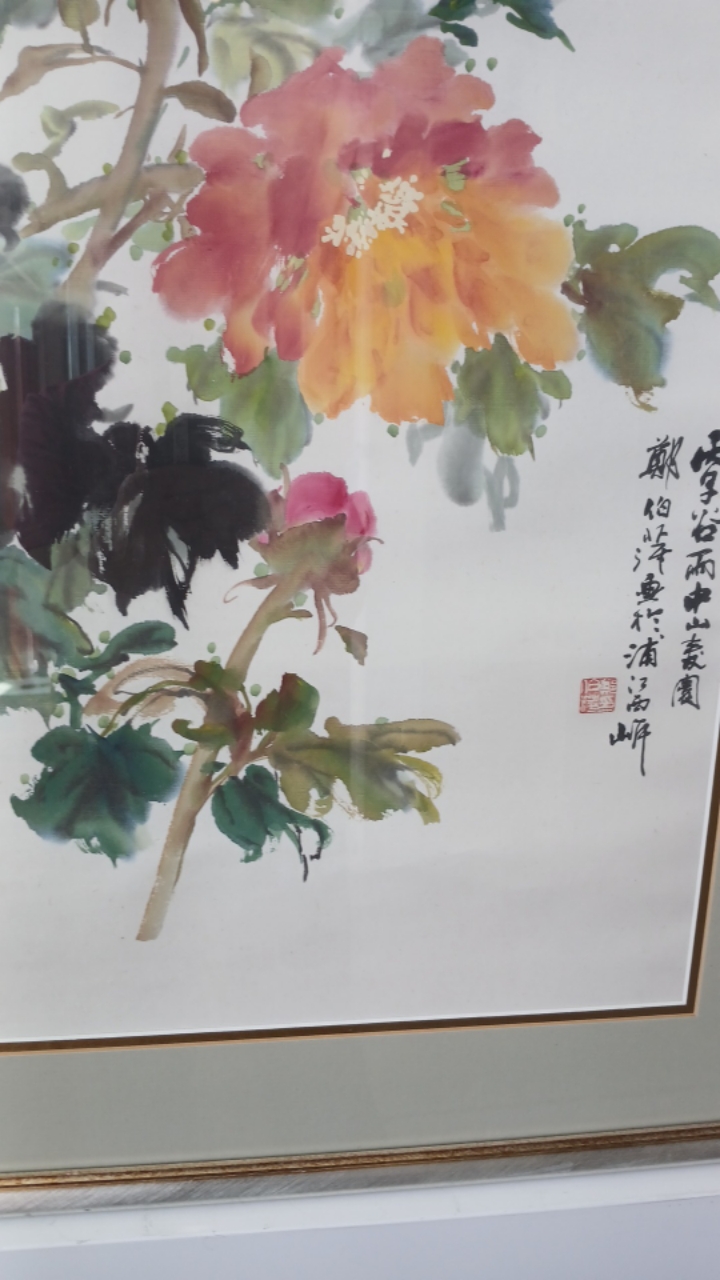 谷雨中山農園
鄭伯萍畫於浦江西岸